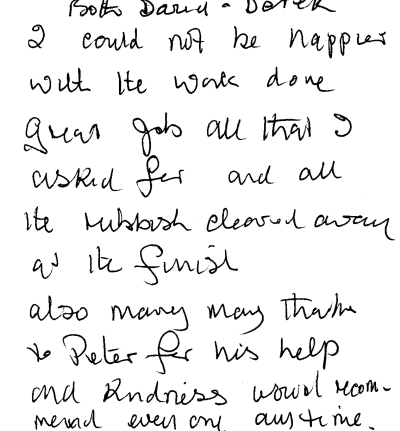 Both David - Derek
I could not be happier
with the work done
great job all that I
asked for and all
the rubbish cleared away
at the finish
also many many thanks
to Peter for his help
and kindness would recom-
mend everyone anytime.